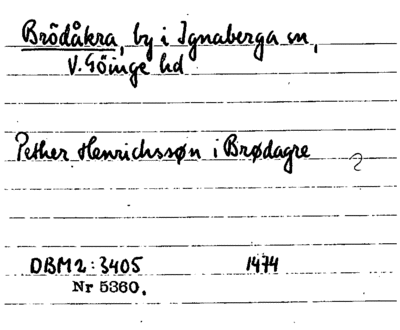 Brödåkra, by i Ignaberga sn,
V. Göinge hd
Pether Henrichssøn i Brødagre ?
DBM2:3405 1474
Nr 5360.